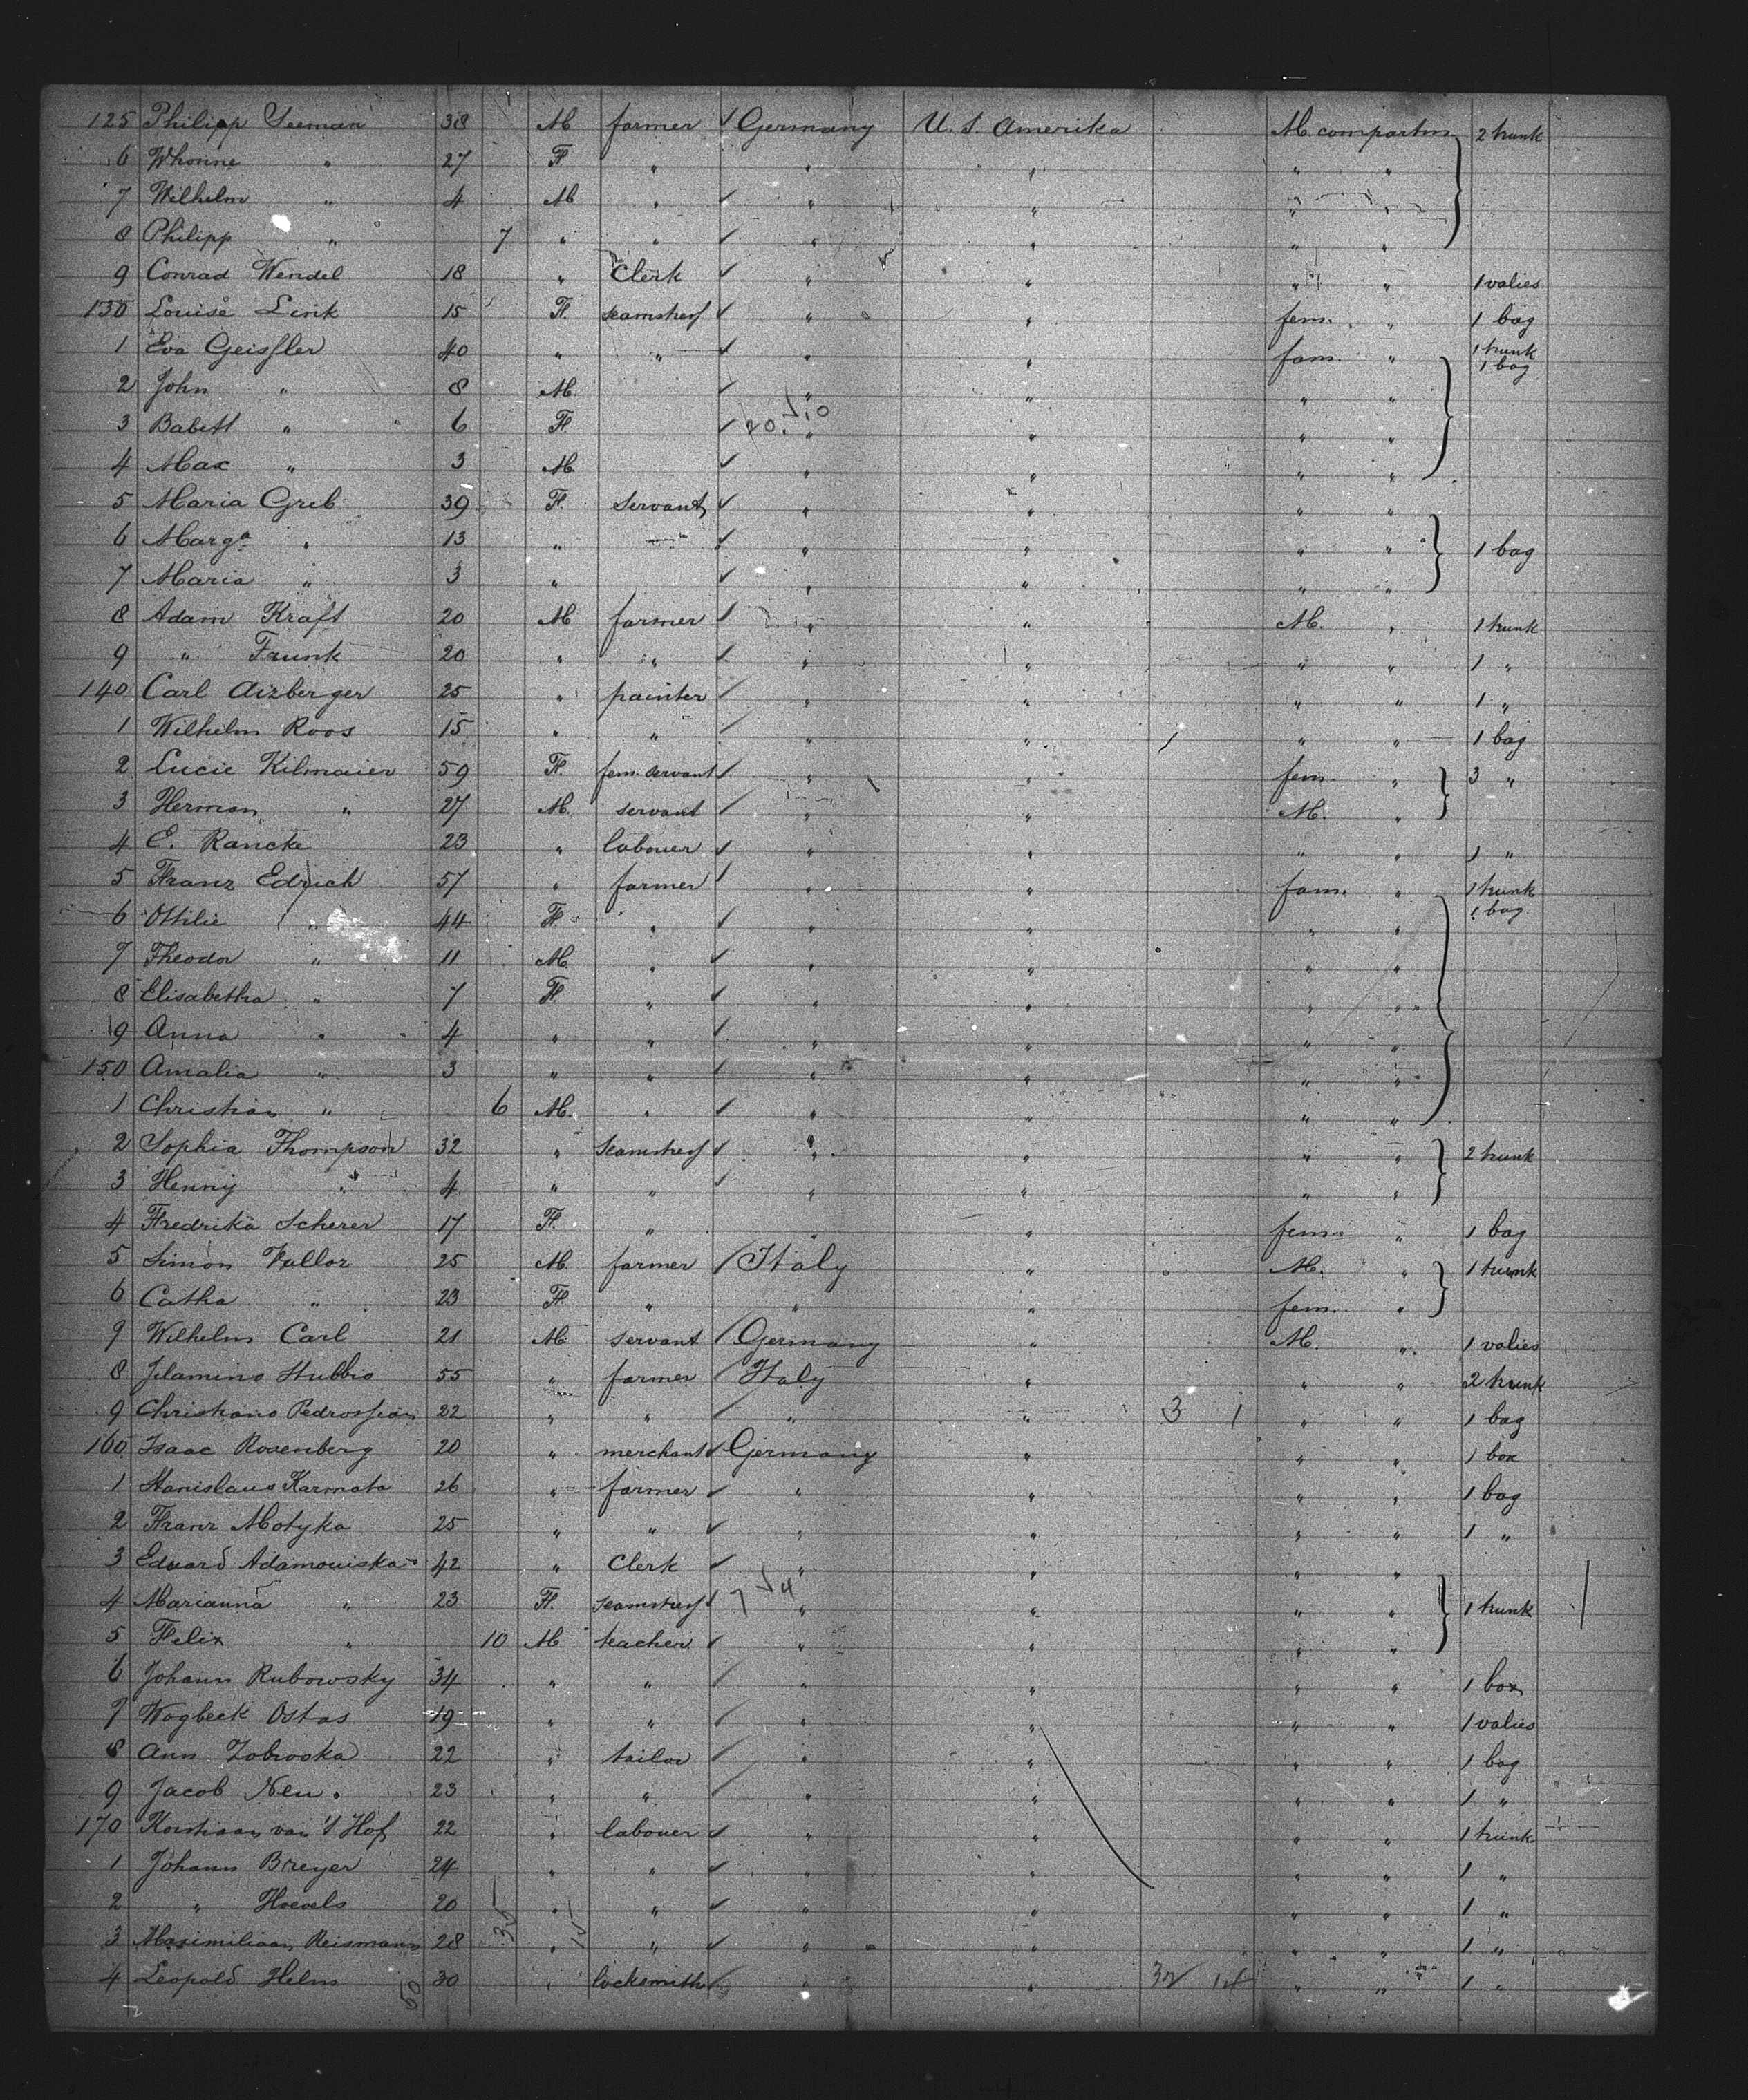 125 Philipp Seeman 38 M farmer ✓ Germany U. S. Amerika M. compartm 2 trunk
6 " 27 F " " " " "
7 Wilhelm " 4 M " ✓ " " " "
8 Philipp " 7 " " ✓ " " " "
9 Conrad Wendel 18 " Clerk ✓ " " " " 1 valies
130 Louise Link 15 F. seamstress ✓ " " fem. " 1 bag
1 Eva Geissler 40 " " ✓ " " fam. " 1 trunk 1 bag
2 John " 8 M. ✓ " " " "
3 Babett " 6 F. ✓ " " " "
4 Max " 3 M. ✓ " " " "
5 Maria Greb 39 F. servant ✓ " " " "
6 Marga " 13 " — ✓ " " " " 1 bag
7 Maria " 3 " ✓ " " " "
8 Adam Kraft 20 M farmer ✓ " " M. " 1 trunk
9 " Frunk 20 " " ✓ " " " " 1 "
140 Carl Aizberger 25 " painter ✓ " " " " 1 "
1 Wilhelm Roos 15 " " ✓ " " " " 1 bag
2 Lucie Kilmaier 59 F. fem. servant ✓ " " fem. " 3 "
3 Herman " 27 M. servant ✓ " " M. "
4 E. Rancke 23 " labouer ✓ " " " " 1 "
5 Franz Edrich 57 " farmer ✓ " " fam. " 1 trunk 1 bag
6 Ottilie " 44 F. " ✓ " " " "
7 Theodor " 11 M. " ✓ " " " "
8 Elisabetha " 7 F. " ✓ " " " "
9 Anna " 4 " " ✓ " " " "
150 Amalia " 3 " " ✓ " " " "
1 Christian " 6 M. " ✓ " " " "
2 Sophia Thompson 32 " Seamstress ✓ " " " " 2 trunk
3 Henny " 4 " " ✓ " " " "
4 Fredrika Scherer 17 F. " " " fem. " 1 bag
5 Simon Vallor 25 M. farmer ✓ Italy " M. " 1 trunk
6 Catha " 23 F. " " " fem. "
7 Wilhelm Carl 21 M. servant ✓ Germany " M. " 1 valies
8 Stubbio 55 " farmer ✓ Italy " " " 2 trunk
9 Christiano 22 " " ✓ " " 3 1 " " 1 bag
160 Isaac Rosenberg 20 " merchant ✓ Germany " " " 1 box
1 Stanislaus Karmata 26 " farmer ✓ " " " " 1 bag
2 Franz Motyka 25 " " ✓ " " " " 1 "
3 Eduard Adamouiska 42 " Clerk ✓ " " " "
4 Marianna " 23 F. seamstress ✓ " " " " 1 trunk
5 Felix " 10 M. teacher ✓ " " " "
6 Johann Rubowsky 34 " " ✓ " " " " 1 box
7 Wogbeck Ostas 19 " " ✓ " " " " 1 valies
8 Ann Zobroska 22 " tailor ✓ " " " " 1 bag
9 Jacob Neu 23 " " ✓ " " " " 1 "
170 van 't Hof 22 " labouer ✓ " " " " 1 trunk
1 Johann Breyer 24 " " ✓ " " " " 1 "
2 " 20 " " ✓ " " " " 1 "
3 Maximiliaan Reismann 28 " " ✓ " " " " 1 "
4 Leopold Helm 30 " locksmith ✓ " " " " 1 "